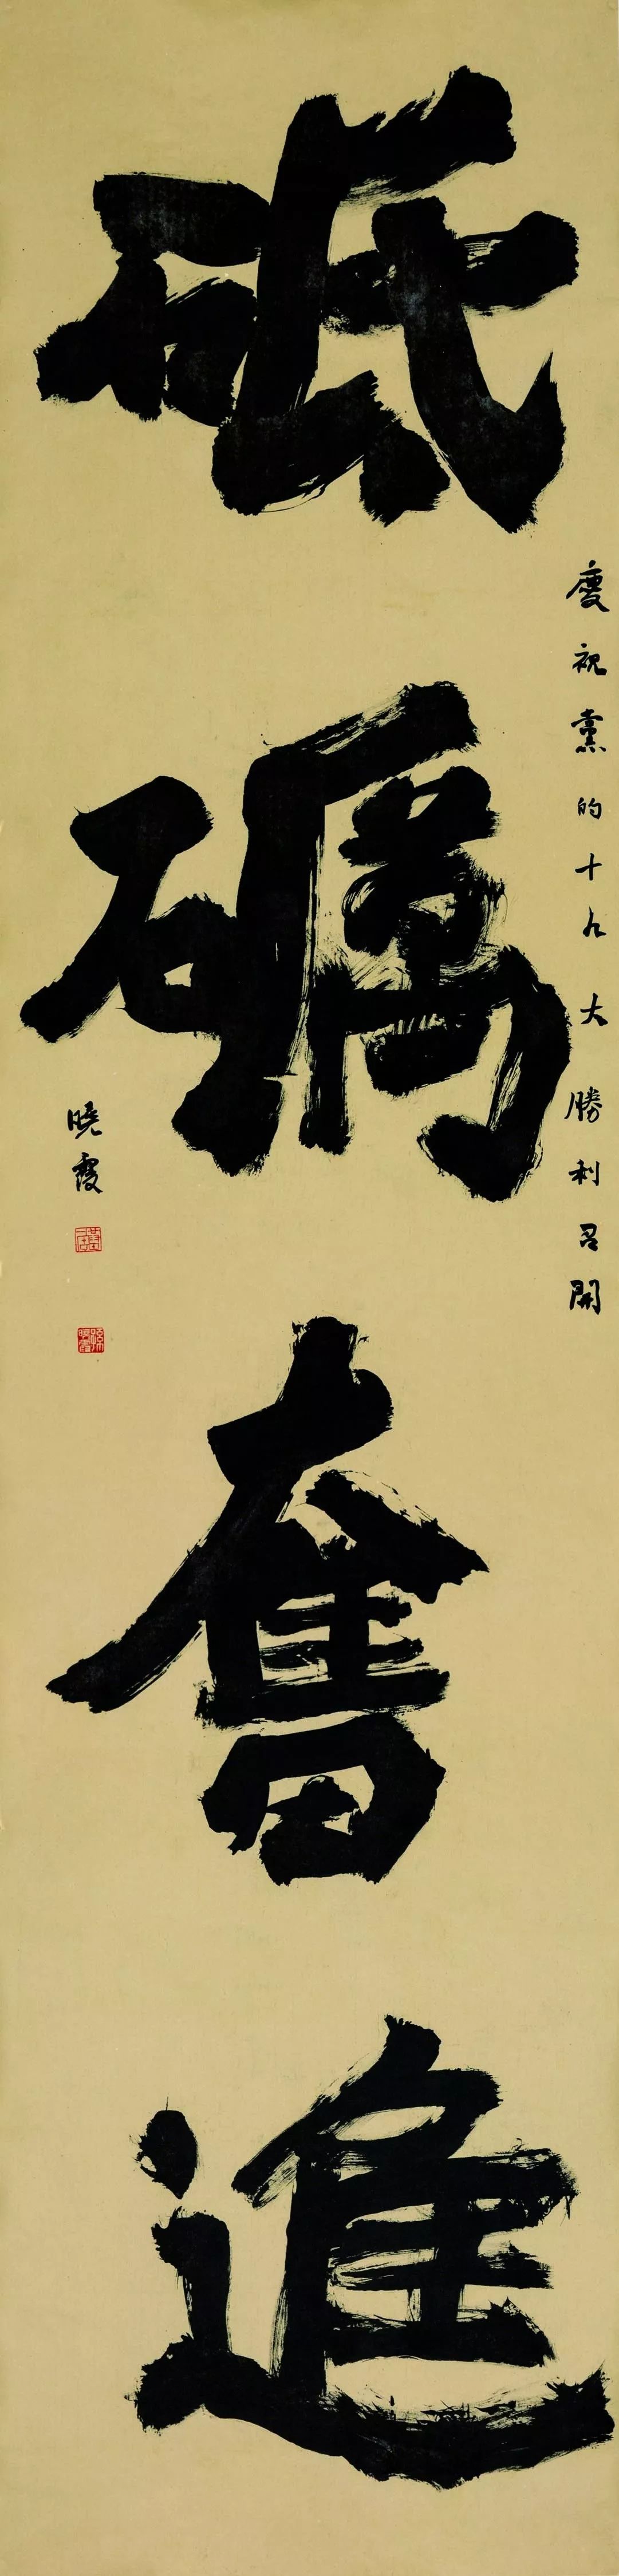 砥礪奮進
慶祝黨的十九大勝利召開
曉霞